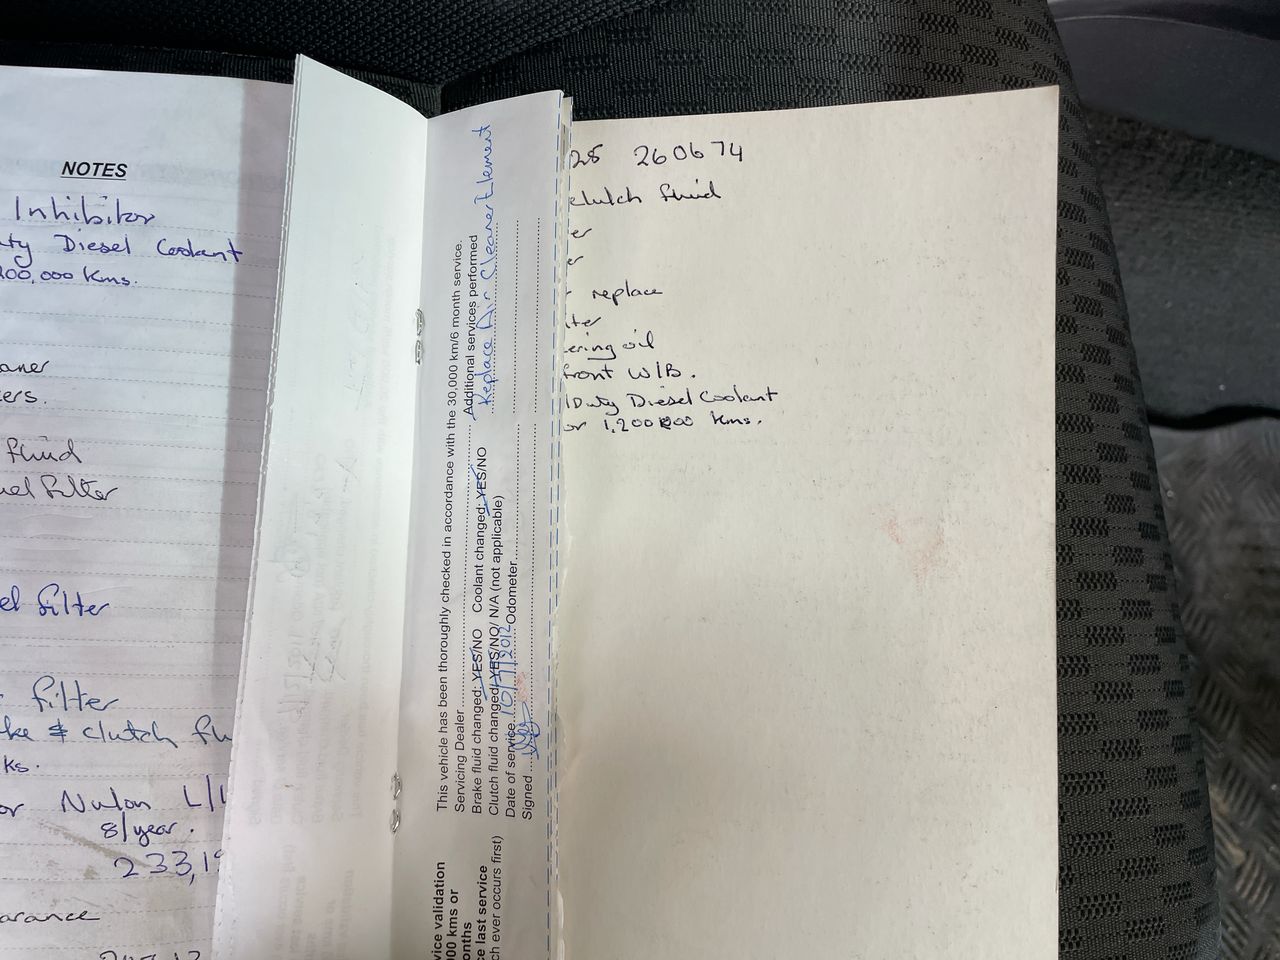 NOTES
Inhibitor
uty Diesel Coolant
200,000 Kms.
aner
ers.
fluid
uel Filter
el Filter
filter
ke & clutch flu
ks.
or Nulon L/L
8/year.
233,19
arance
This vehicle has been thoroughly checked in accordance with the 30,000 km/6 month service.
Servicing Dealer
Additional services performed
Brake fluid changed: YES/NO Coolant changed: YES/NO
Replace Air Cleaner Element
Clutch fluid changed: YES/NO/ N/A (not applicable)
Date of service 10/7/2012 Odometer
Signed
vice validation
000 kms or
onths
ce last service
ch ever occurs first)
25 260674
clutch fluid
er
er
r replace
lter
ering oil
front W/B.
Duty Diesel Coolant
or 1,200000 Kms.